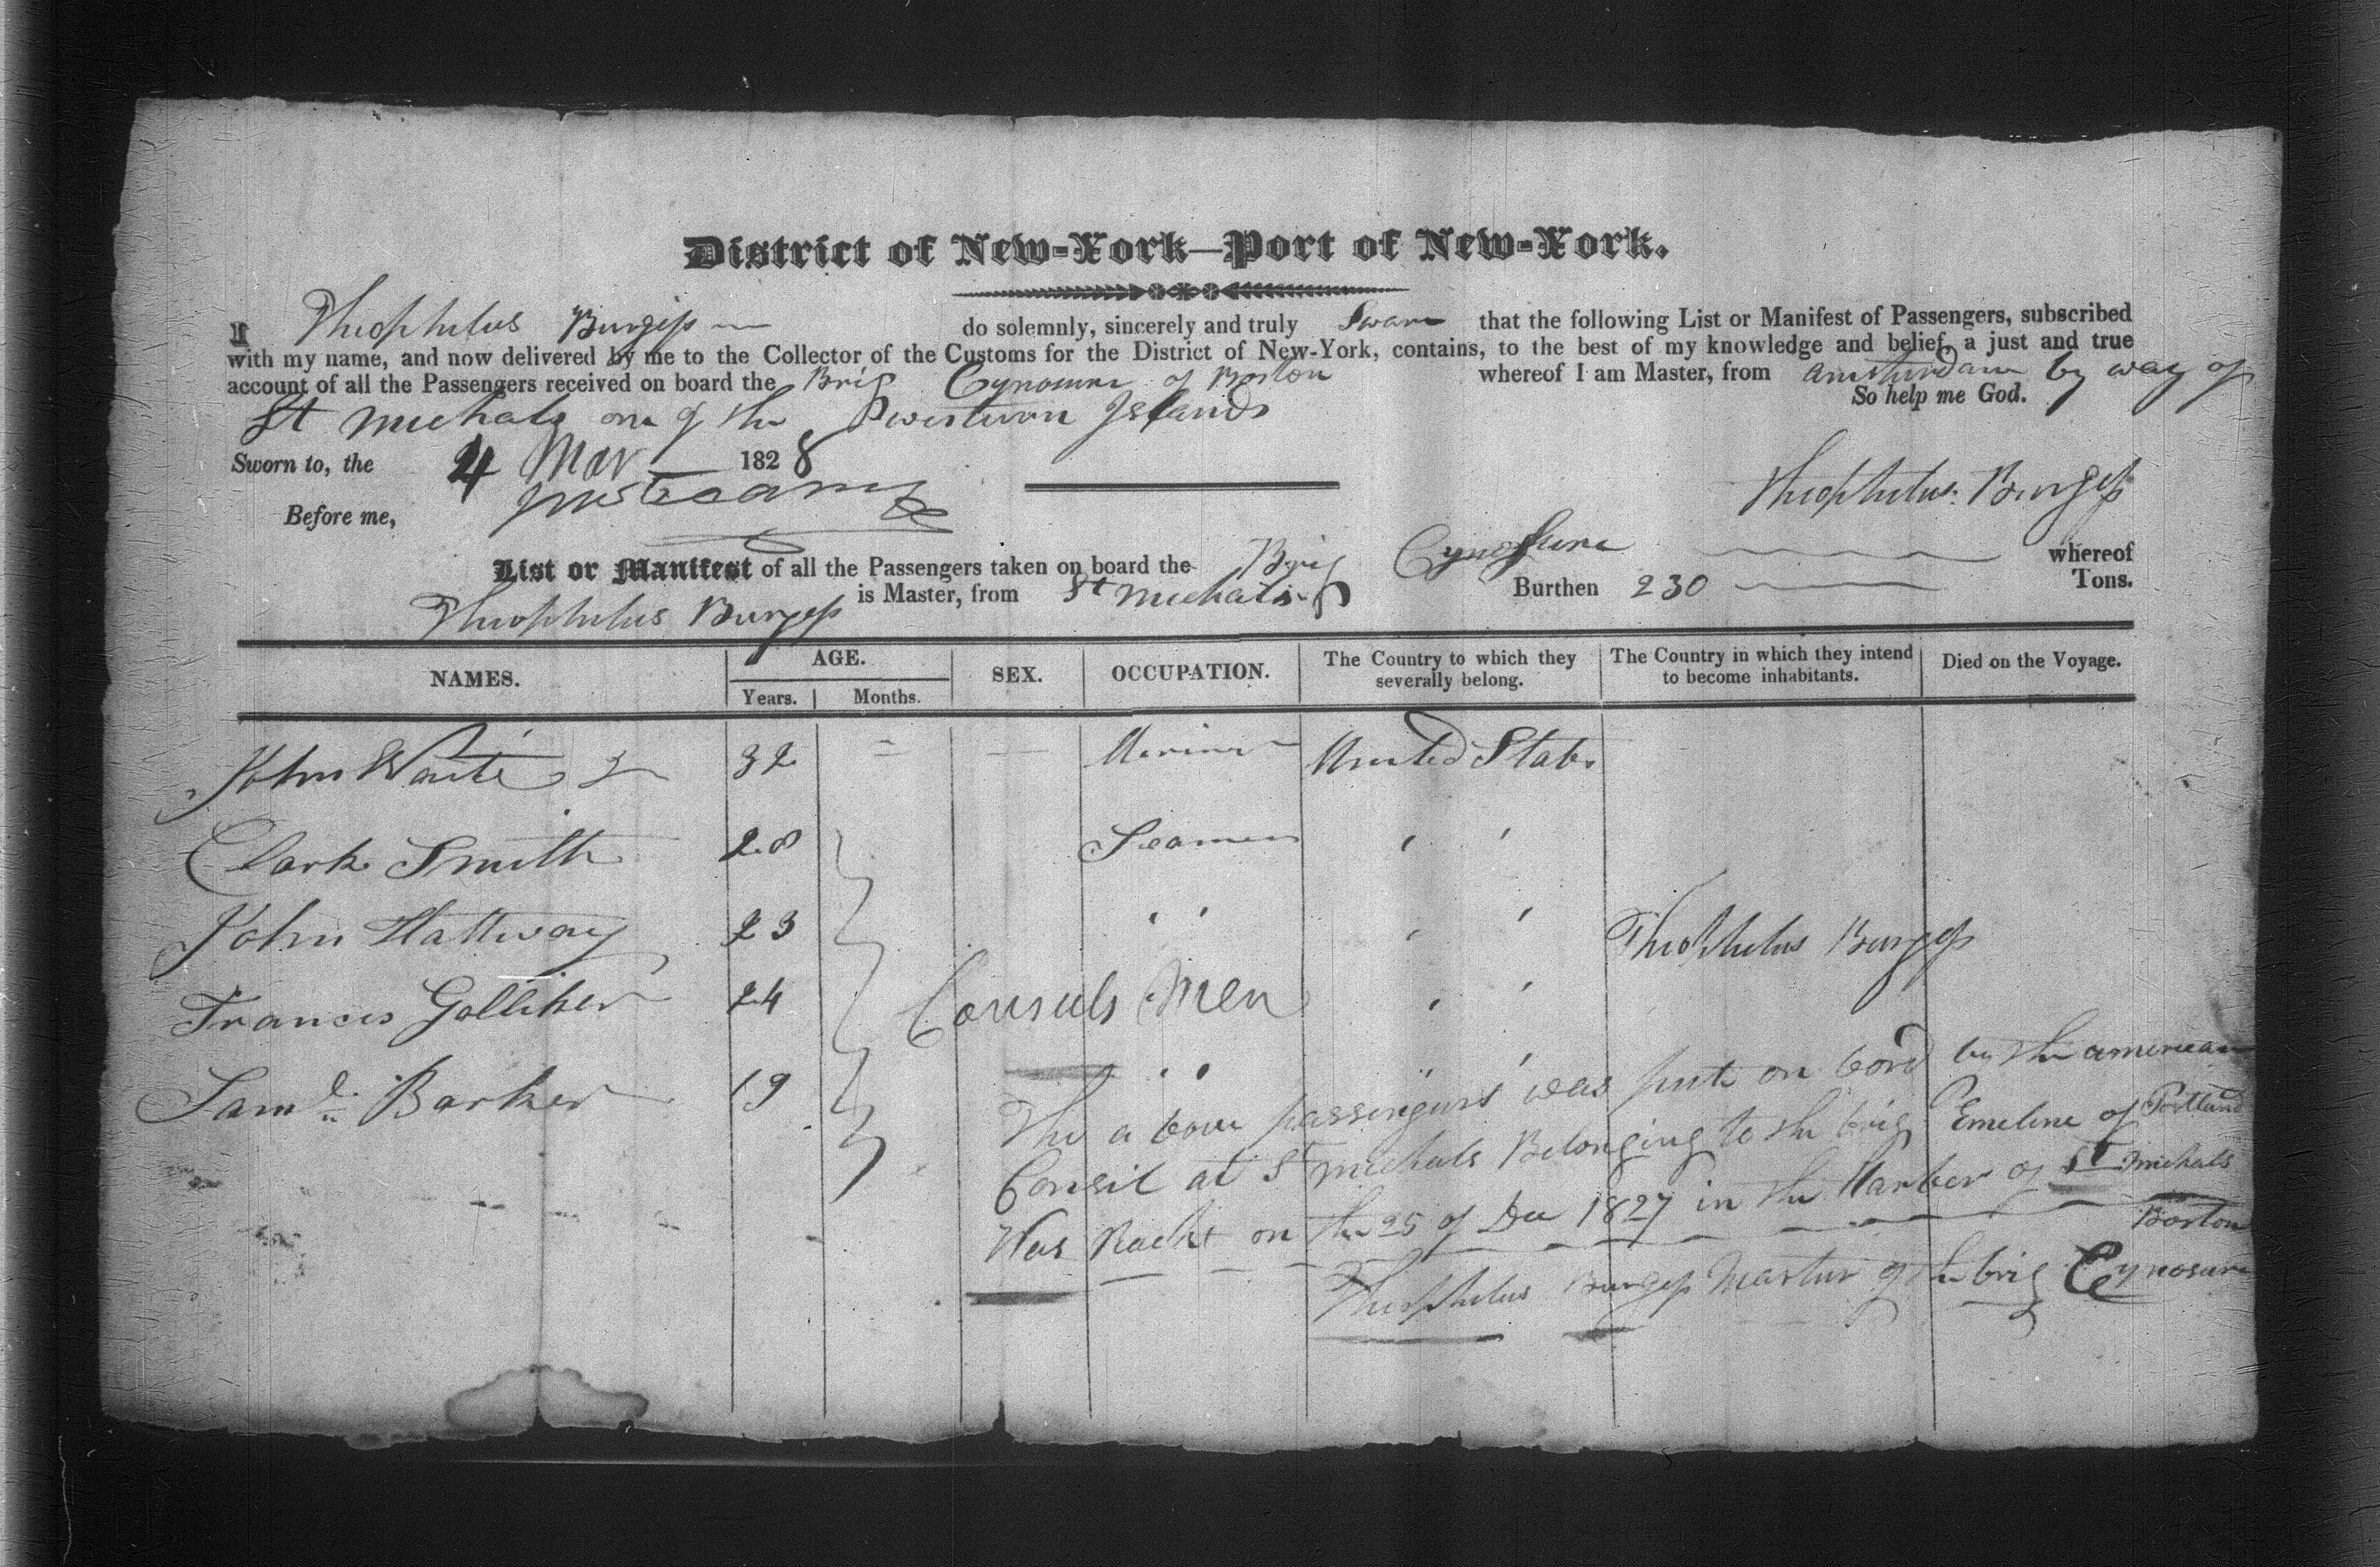 District of New-York—Port of New-York.
I Theophulus Burgess do solemnly, sincerely and truly Sware that the following List or Manifest of Passengers, subscribed
with my name, and now delivered by me to the Collector of the Customs for the District of New-York, contains, to the best of my knowledge and belief, a just and true
account of all the Passengers received on board the Brig Cynosure of Boston whereof I am Master, from amsterdam by way of
St Michals one of the westurn Islands So help me God.
Sworn to, the 4 Mar 1828
Theophulus Burgess
Before me,
List or Manifest of all the Passengers taken on board the Brig Cynosure whereof
Theophulus Burgess is Master, from St Michals Burthen 230 Tons.
NAMES. AGE. SEX. OCCUPATION. The Country to which they severally belong. The Country in which they intend to become inhabitants. Died on the Voyage.
Years. Months.
John Waite 32 Mariner United States
Clark Smith 28 Seamen " "
John Hattway 23 " " " "
Theophulus Burgess
Francis Golliker 24 Consuls Men " "
Saml Barker 19 " " " "
The a bove passengurs was put on bord by the american
Consil at St Michals Belonging to the brig Emeline of Portland
Was Rackt on the 25 of Dec 1827 in the Harber of St Michals
Theophulus Burgess Mastur of the brig Cynosure Boston